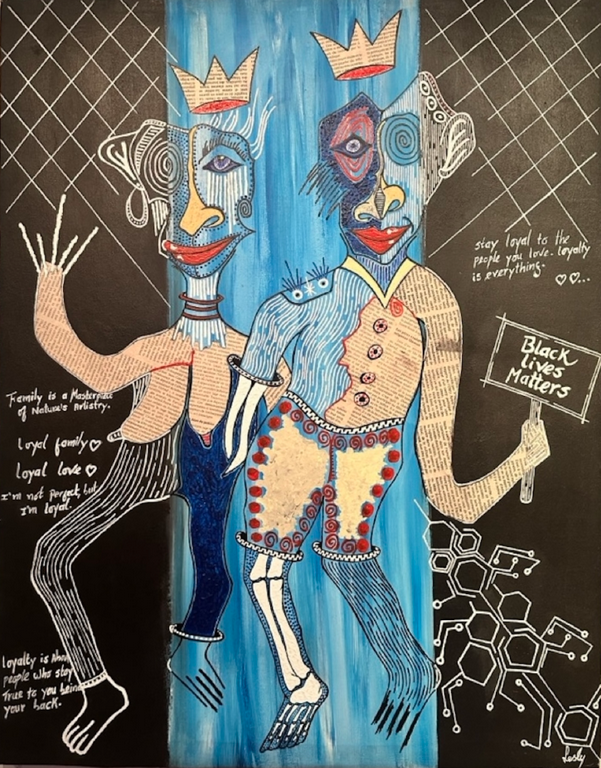 stay loyal to the
people you love. loyalty
is everything.
Black
lives
Matters
Family is a Masterpiece
of Nature's Artistry.
loyal family
loyal love
I'm not perfect, but
I'm loyal.
loyalty is
people who stay
True to you
your back.
Lesly